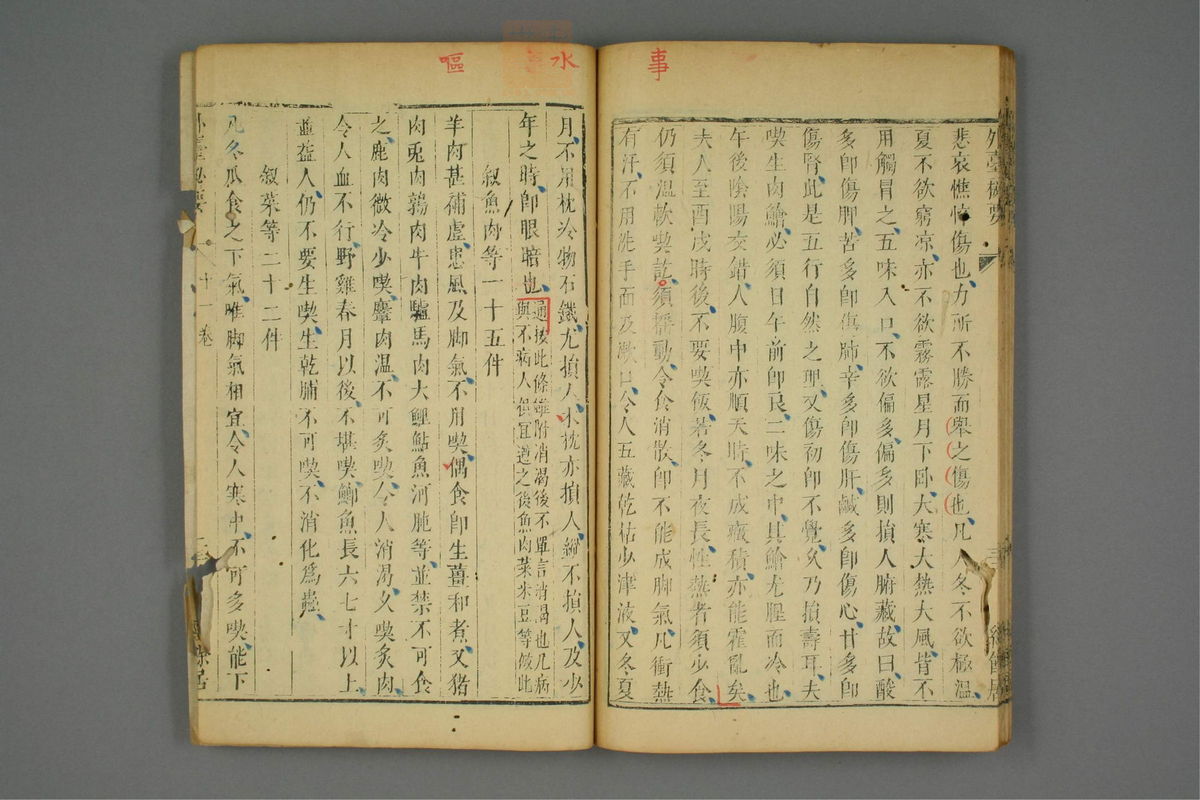 事
水
嘔
外臺秘要
悲哀憔悴傷也力所不勝而舉之傷也凡人冬不欲極溫
夏不欲窮涼亦不欲霧露星月下臥大寒大熱大風皆不
用觸冒之五味入口不欲偏多偏多則損人腑藏故曰酸
多卽傷脾苦多卽傷肺辛多卽傷肝鹹多卽傷心甘多卽
傷腎此是五行自然之理又傷初卽不覺久乃損壽耳夫
喫生肉鱠必須日午前卽良二味之中其鱠尤腥而冷也
午後陰陽交錯人腹中亦順天時不成癥積亦能霍亂矣
夫人至酉戌時後不要喫飯若冬月夜長性熱者須少食
仍須溫軟喫訖須搖動令食消散卽不能成脚氣凡衝熱
有汗不用洗手面及漱口令人五藏乾枯少津液又冬夏
月不用枕冷物石鐵尤損人木枕亦損人縱不損人及少
年之時卽眼暗也
通按此條雖附消渴後不單言消渴也凡病
與不病人俱宜遵之後魚肉菜米豆等倣此
敍魚肉等一十五件
羊肉甚補虛患風及脚氣不用喫偶食卽生薑和煮又猪
肉兎肉鶉肉牛肉驢馬肉大鯉鮎魚河豘等並禁不可食
之鹿肉微冷少喫麞肉溫不可炙喫令人消渴久喫炙肉
令人血不行野雞春月以後不堪喫鯽魚長六七寸以上
並益人仍不要生喫生乾脯不可喫不消化爲蟲
敍菜等二十二件
凡冬瓜食之下氣唯脚氣相宜令人寒中不可多喫能下
外臺秘要
十一卷